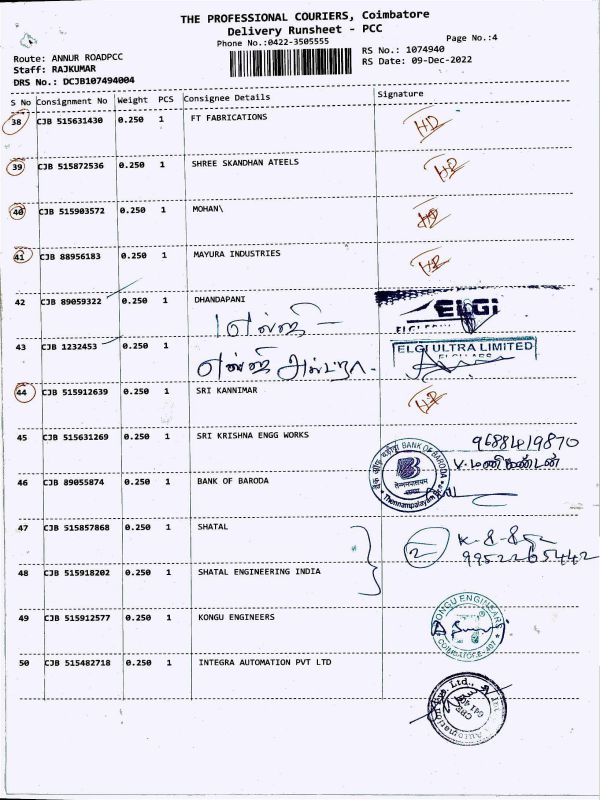 THE PROFESSIONAL COURIERS, Coimbatore
Delivery Runsheet - PCC
Phone No.:0422-3505555
Page No.:4
Route: ANNUR ROADPCC
RS No.: 1074940
Staff: RAJKUMAR
RS Date: 09-Dec-2022
DRS No.: DCJB107494004
S No Consignment No Weight PCS Consignee Details Signature
38 CJB 515631430 0.250 1 FT FABRICATIONS HD
39 CJB 515872536 0.250 1 SHREE SKANDHAN ATEELS HD
40 CJB 515903572 0.250 1 MOHAN\ HD
41 CJB 88956183 0.250 1 MAYURA INDUSTRIES HD
42 CJB 89059322 0.250 1 DHANDAPANI ELGI
எல்ஜி
43 CJB 1232453 0.250 1 ELGI ULTRA LIMITED
எல்ஜி அல்ட்ரா
44 CJB 515912639 0.250 1 SRI KANNIMAR HD
45 CJB 515631269 0.250 1 SRI KRISHNA ENGG WORKS 9688419870
V. மணிகண்டன்
46 CJB 89055874 0.250 1 BANK OF BARODA BANK OF BARODA
Thennampalayam
47 CJB 515857868 0.250 1 SHATAL 2
9952265442
48 CJB 515918202 0.250 1 SHATAL ENGINEERING INDIA
49 CJB 515912577 0.250 1 KONGU ENGINEERS KONGU ENGINEERS
COIMBATORE
50 CJB 515482718 0.250 1 INTEGRA AUTOMATION PVT LTD